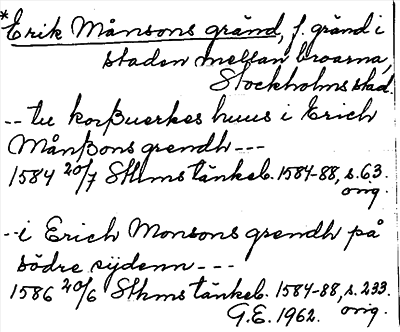 *Erik Månsons gränd, f. gränd i
staden mellan broarna,
Stockholms stad.
-- tu korßuerkes huus i Erich
Månßons grendh ---
1584 20/7 Sthms tänkeb. 1584-88, s. 63.
orig.
-- i Erich Monsons grendh på
södre sijdenn ---
1586 20/6 Sthms tänkeb. 1584-88, s. 233.
orig.
G.E. 1962.